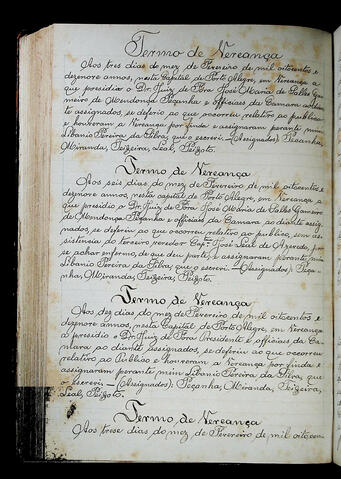 Termo de Vereança
Aos tres dias do mez de Fevereiro de mil oitocentos e
dezenove annos, nesta Capital de Porto Alegre, em Vereança a
que presidio o Dr. Juiz de Fóra José Maria de Salles Ga-
meiro de Mendonça Peçanha e Officiais da Camara ao dian-
te assignados, se deferio ao que occoreu relativo ao publico
e houveram a Vereança por finda e assignaram perante mim
Libanio Pereira da Silva, que o escrevi. – (Assignados) Peçanha,
Miranda, Teixeira, Leal, Peixoto.
Termo de Vereança
Aos seis dias do mez de Fevereiro de mil oitocentos e
dezenove annos, nesta capital de Porto Alegre, em Vereança a
que presidio o Dr. Juiz de Fóra José Maria de Salles Gameiro
de Mendonça Peçanha e officiaes da Camara ao diante assig-
nados, se deferio ao que occoreu relativo ao publico, sem as-
sistencia do terceiro veredor Capm. José Leal de Azevedo, por
se achar enfermo, de que deu parte, e assignaram perante mim
Libanio Pereira da Silva, que o escrevi. – (Assignados) Peça-
nha, Miranda, Teixeira, Peixoto.
Termo de Vereança
Aos dez dias do mez de Fevereiro de mil oitocentos e
dezenove annos, nesta Capital de Porto Alegre, em Vereança
a presidio o Dr. Juiz de Fora Presidente e officiaes da Ca-
mara ao diante assignados, se deferiu ao que occorreu
relativo ao Publico e houveram a Vereança por finda e
assignaram perante mim Libanio Pereira da Silva, que
o escrevi – (Assignados) Peçanha, Miranda, Teixeira,
Leal, Peixoto.
Termo de Vereança
Aos treze dias do mez de Fevereiro de mil oitocen-